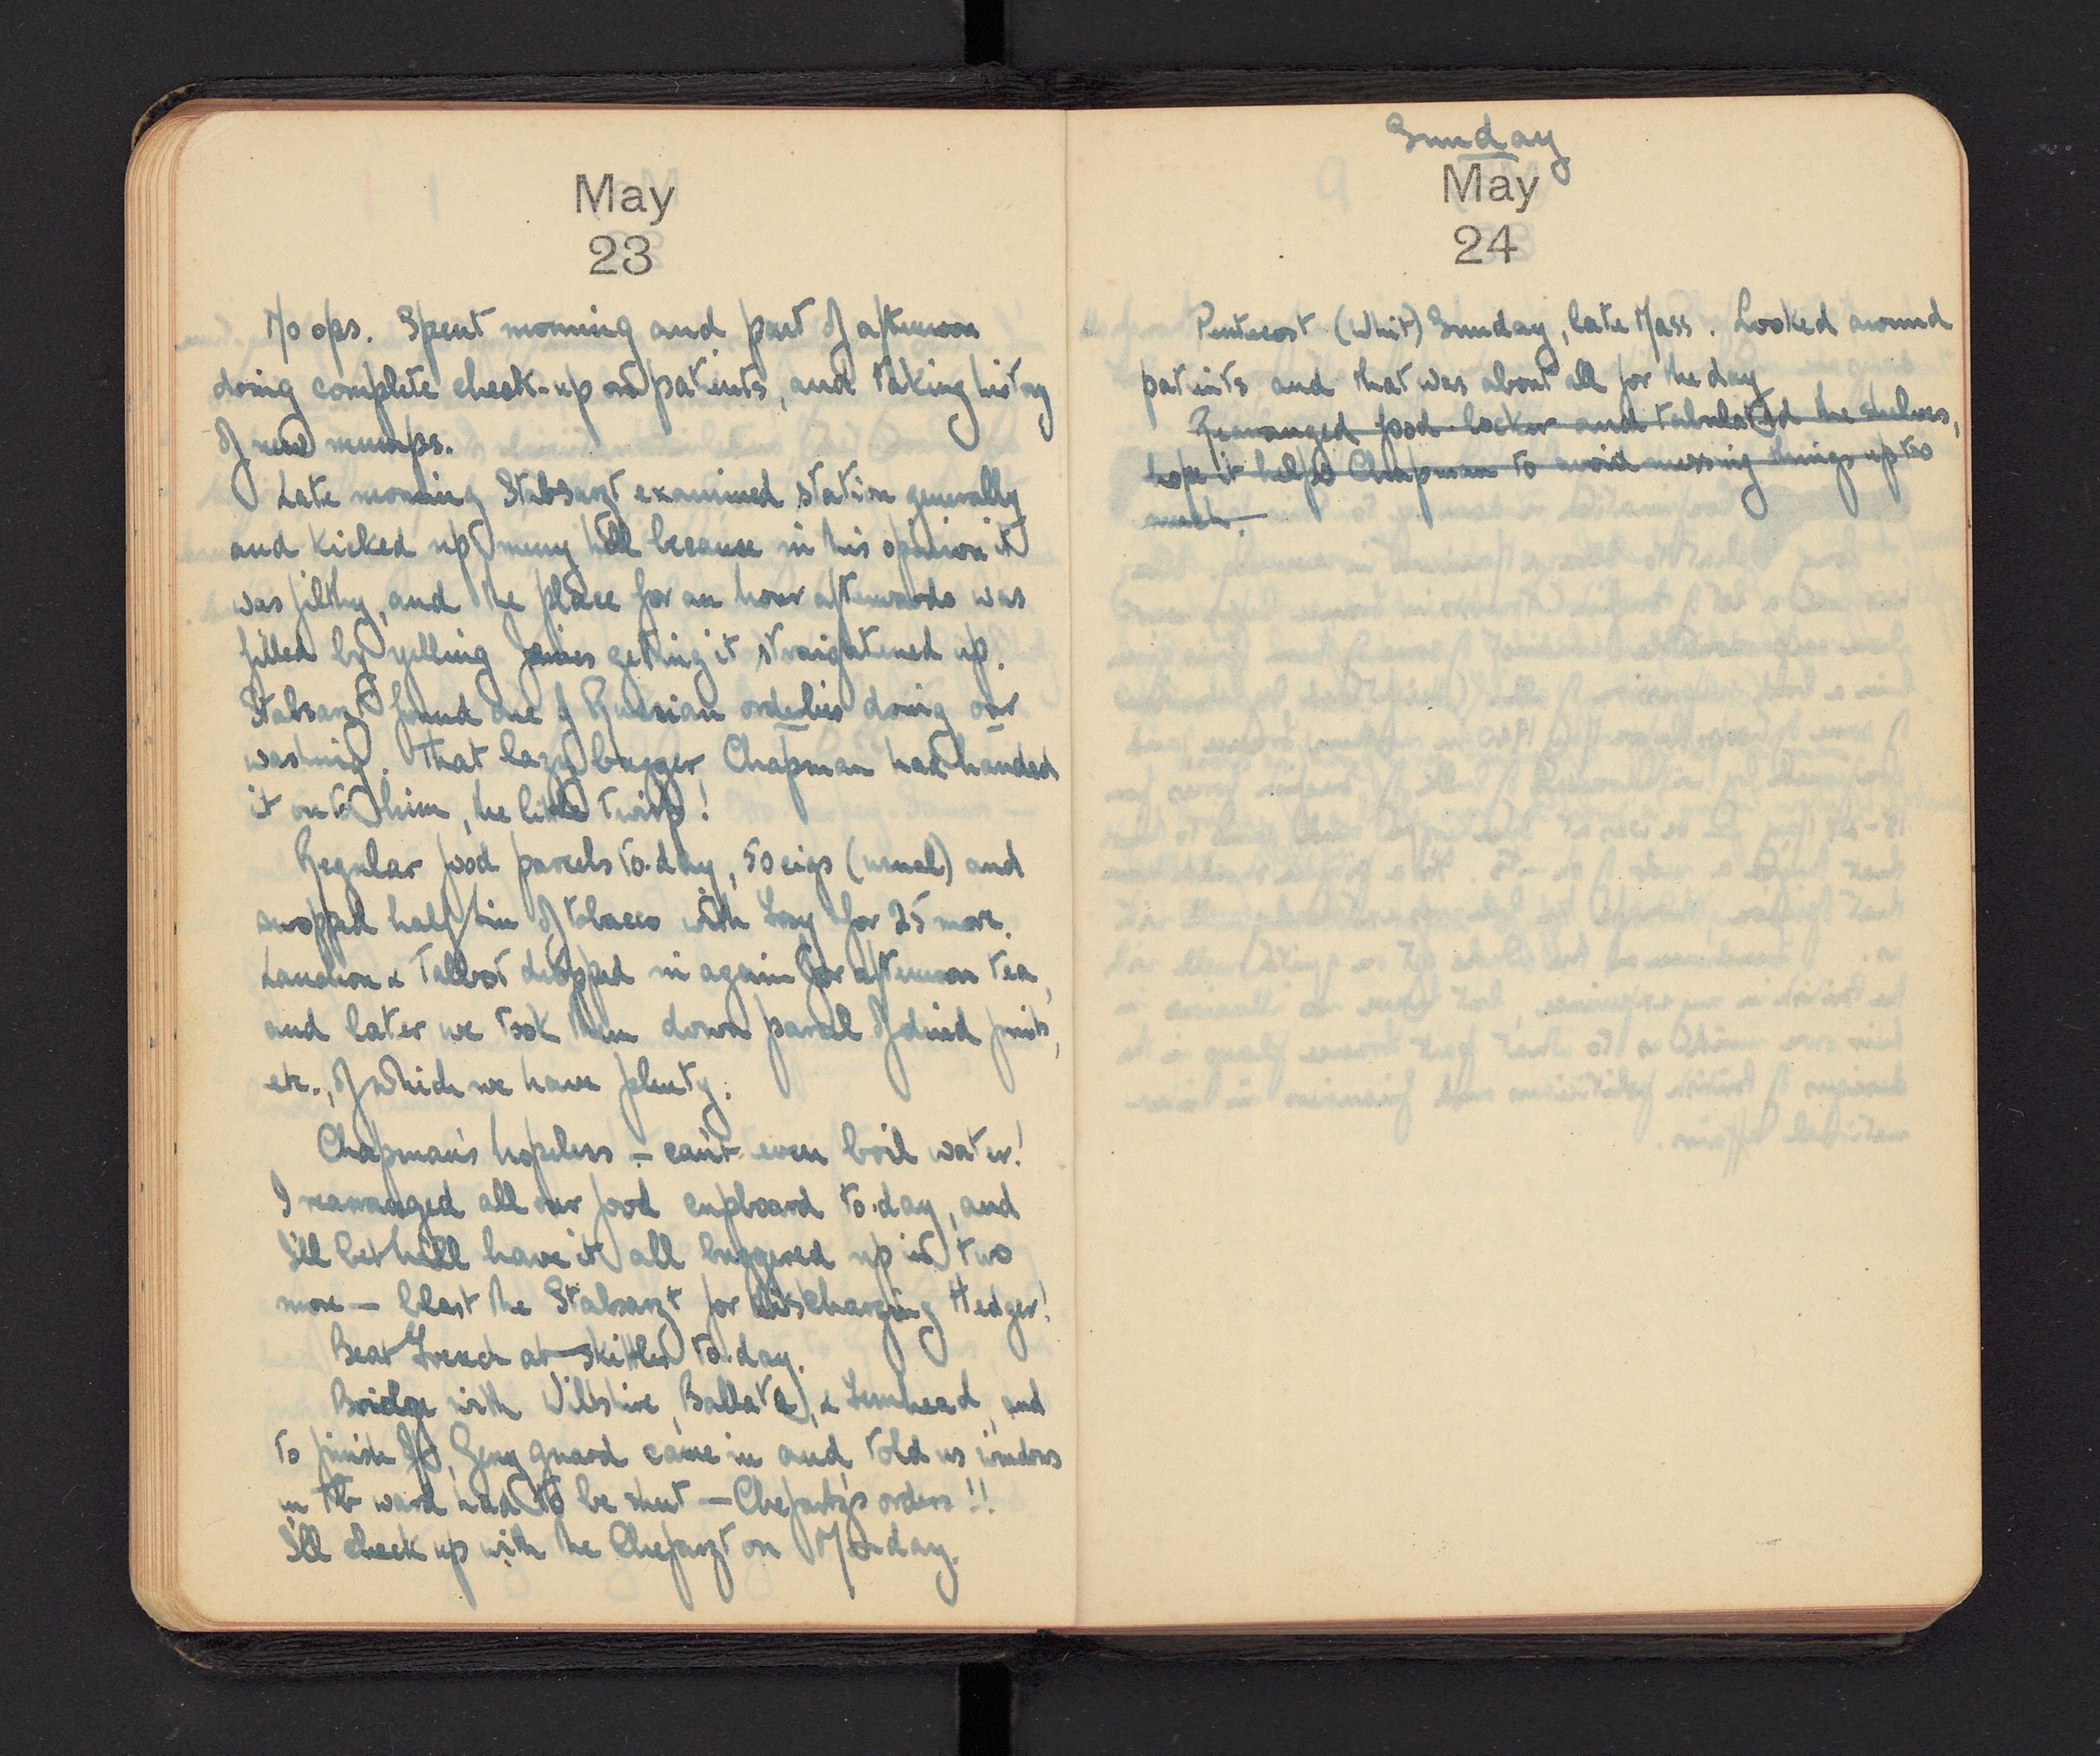 May
23
No ops. Spent morning and part of afternoon
doing complete check-up on patients, and taking history
of new mumps.
Late morning Stabsarzt examined station generally
and kicked up merry hell because in his opinion it
was filthy, and the place for an hour afterwards was
filled by yelling getting it straightened up.
Stabsarzt found one of Russian orderlies doing our
washing. That lazy bugger Chapman had handed
it on to him, the little twirp!
Regular food parcels to-day, 50 cigs (usual) and
swopped half tin of tobacco with for 25 more.
& Talbot dropped in again for afternoon tea,
and later we took them down parcel of dried fruits,
etc., of which we have plenty.
Chapman's hopeless – can't even boil water!
I rearranged all our food cupboard to-day, and
I'll bet he'll have it all buggered up in two
more — blast the Stabsarzt for discharging Hedger!
Beat French at skittles to-day.
Bridge with Wiltshire, & and
to finish off, Gerry guard came in and told us windows
in TB ward had to be shut — Chefartz's orders!!
I'll check up with the Chefarzt on Monday.
Sunday
May
24
Pentecost (Whit) Sunday, late Mass. Looked around
patients and that was about all for the day
Rearranged food-locker and tabulated the shelves,
hope it helps Chapman to avoid messing things up too
much.